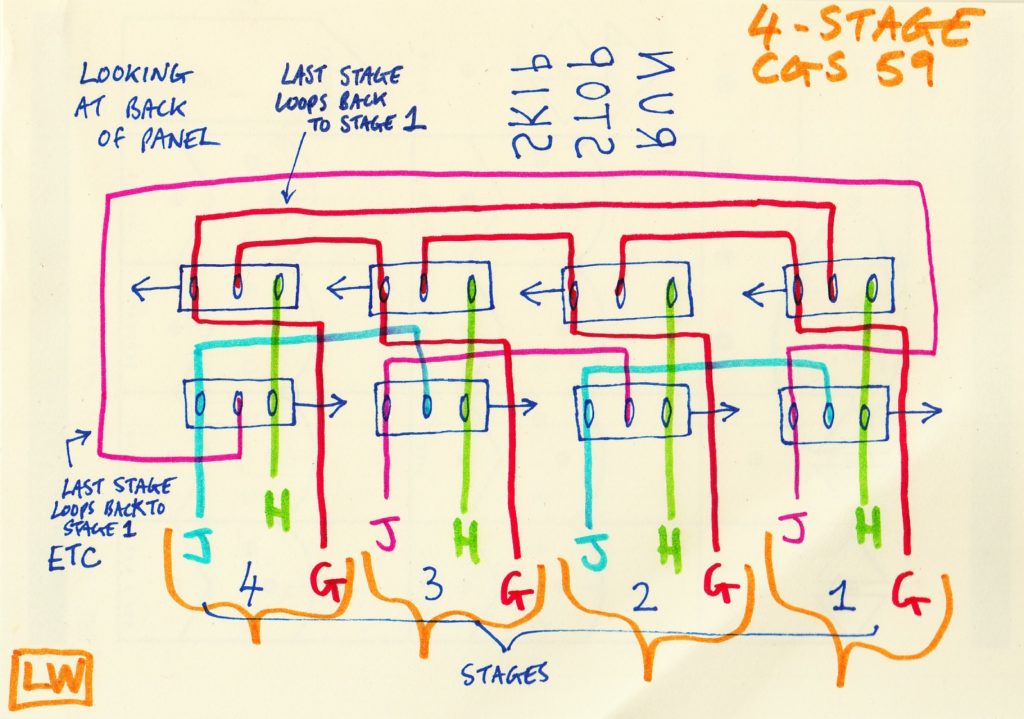 4-STAGE
CGS 59
LOOKING
AT BACK
OF PANEL
LAST STAGE
LOOPS BACK
TO STAGE 1
SKIP
STOP
RUN
LAST STAGE
LOOPS BACK TO
STAGE 1
ETC
J H G J H G J H G J H G
4 3 2 1
STAGES
LW